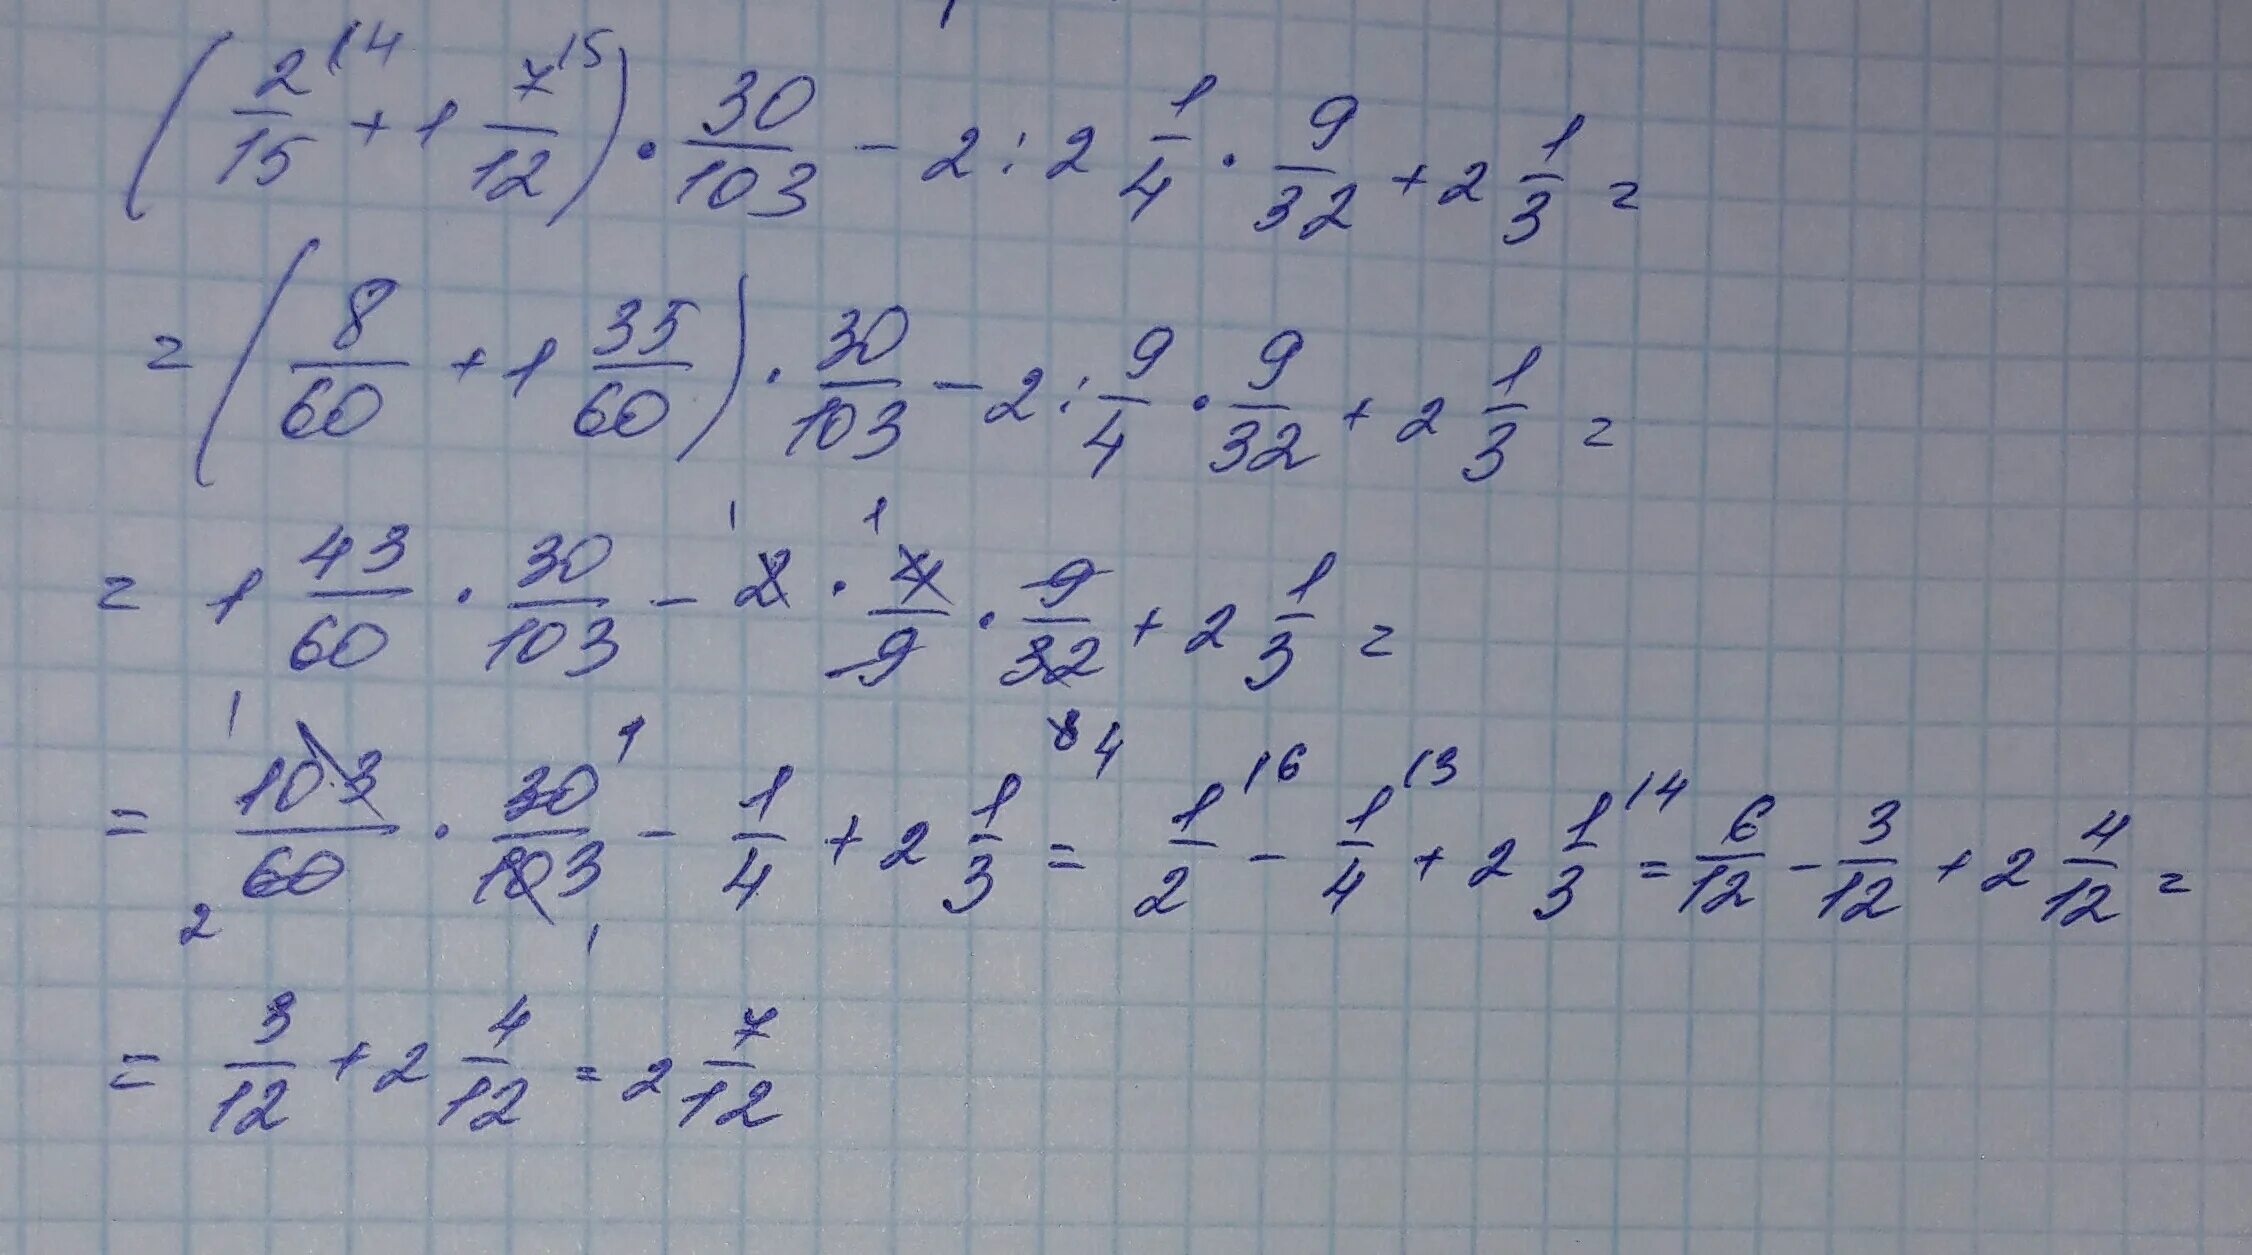 (2/15 ⁽⁴ + 1 7/12 ⁽⁵) · 30/103 - 2 : 2 1/4 · 9/32 + 2 1/3 =
= (8/60 + 1 35/60) · 30/103 - 2 : 9/4 · 9/32 + 2 1/3 =
= 1 43/60 · 30/103 - 2 · 4/9 · 9/32 + 2 1/3 =
= 103/60 · 30/103 - 1/4 + 2 1/3 = 1/2 ⁽⁶ - 1/4 ⁽³ + 2 1/3 ⁽⁴ = 6/12 - 3/12 + 2 4/12 =
= 3/12 + 2 4/12 = 2 7/12